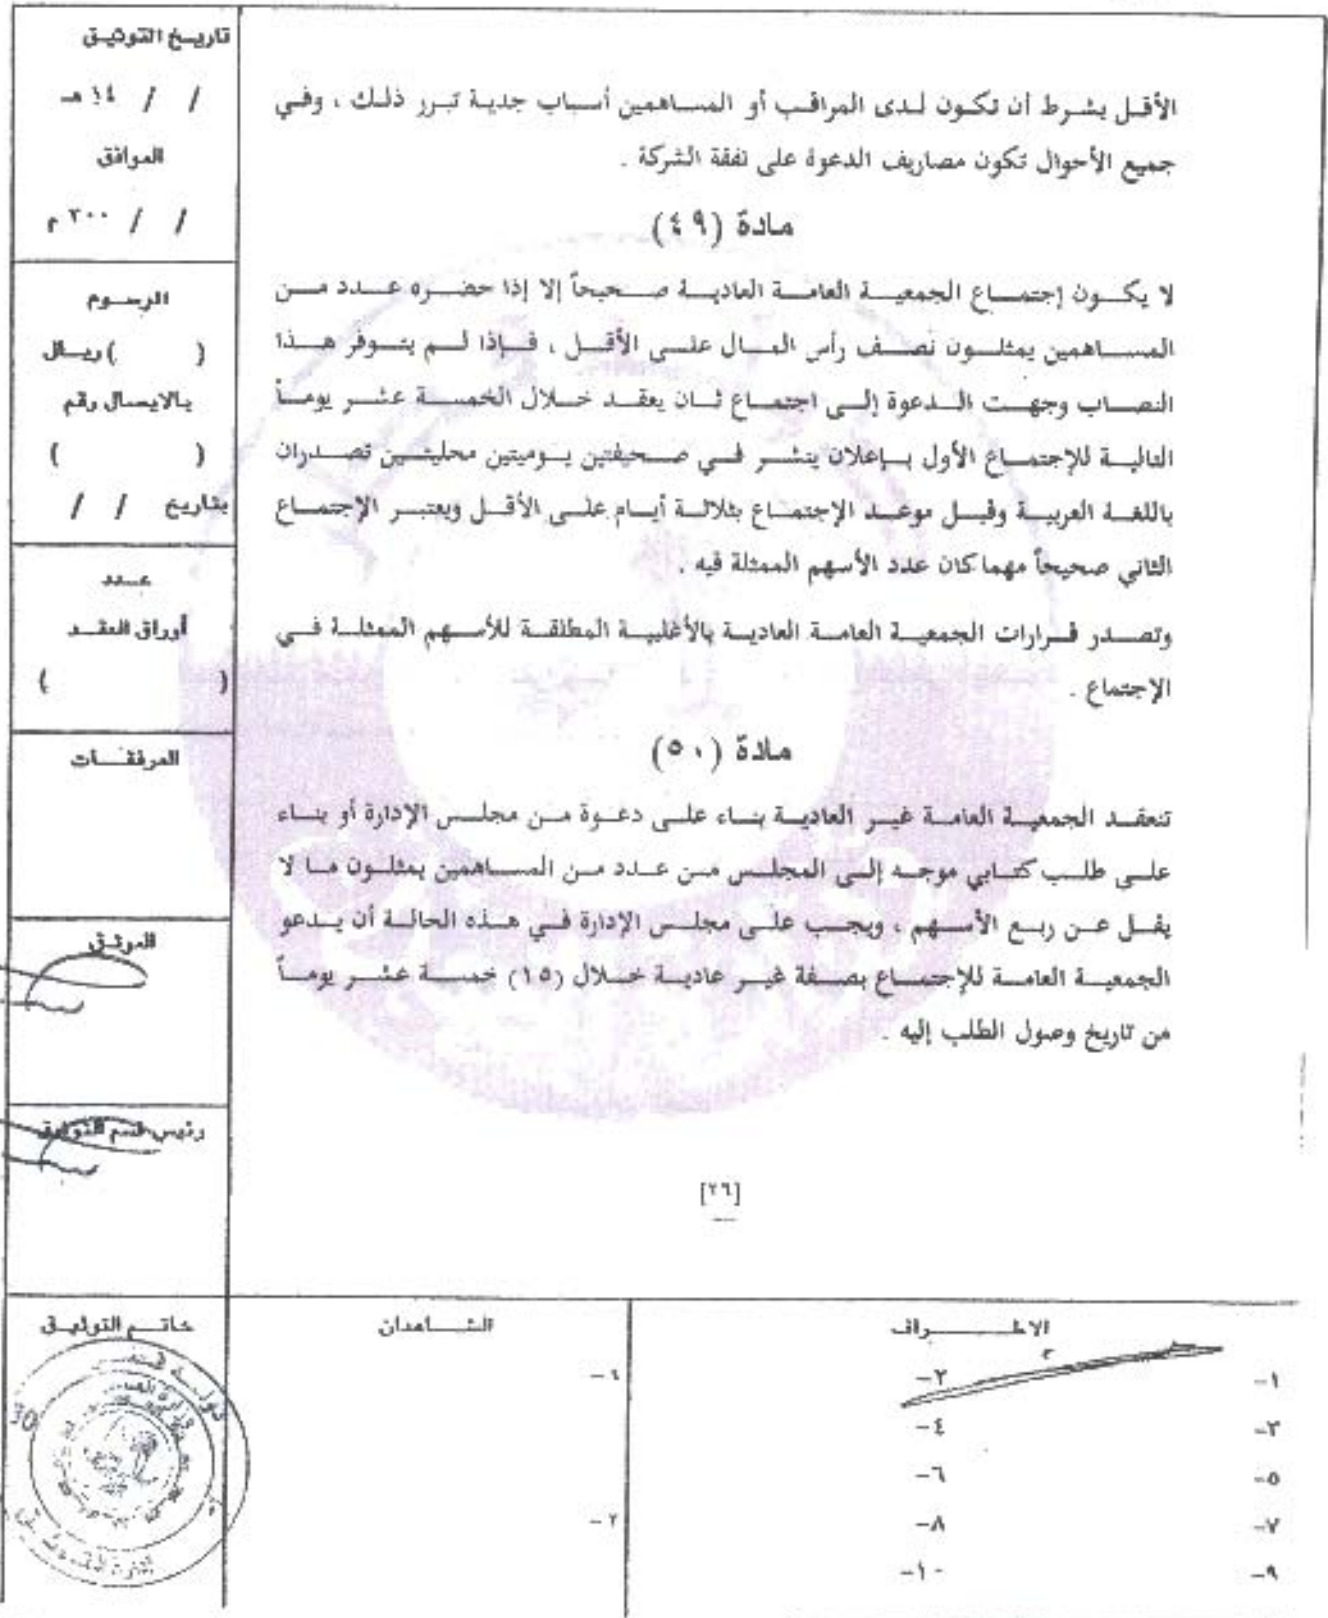 الأقل بشرط أن تكون لدى المراقب أو المساهمين أسباب جدية تبرر ذلك ، وفي
جميع الأحوال تكون مصاريف الدعوة على نفقة الشركة .
مادة (٤٩)
لا يكون إجتماع الجمعية العامة العادية صحيحاً إلا إذا حضره عدد من
المساهمين يمثلون نصف رأس المال على الأقل ، فإذا لم يتوفر هذا
النصاب وجهت الدعوة إلى اجتماع ثان يعقد خلال الخمسة عشر يوماً
التالية للإجتماع الأول بإعلان ينشر في صحيفتين يوميتين محليتين تصدران
باللغة العربية وقبل موعد الإجتماع بثلاثة أيام على الأقل ويعتبر الإجتماع
الثاني صحيحاً مهما كان عدد الأسهم الممثلة فيه .
وتصدر قرارات الجمعية العامة العادية بالأغلبية المطلقة للأسهم الممثلة في
الإجتماع .
مادة (٥٠)
تنعقد الجمعية العامة غير العادية بناء على دعوة من مجلس الإدارة أو بناء
على طلب كتابي موجه إلى المجلس من عدد من المساهمين يمثلون ما لا
يقل عن ربع الأسهم ، ويجب على مجلس الإدارة في هذه الحالة أن يدعو
الجمعية العامة للإجتماع بصفة غير عادية خلال (١٥) خمسة عشر يوماً
من تاريخ وصول الطلب إليه .
[٢٦]
تاريخ التوثيق
/ / ١٤ هـ
الموافق
/ / ٢٠٠ م
الرسوم
( ) ريال
بالايصال رقم
( )
بتاريخ / /
عدد
أوراق العقد
( )
المرفقات
الموثق
رئيس قسم التوثيق
الاطراف
١- ٢-
٣- ٤-
٥- ٦-
٧- ٨-
٩- ١٠-
الشاهدان
١-
٢-
خاتم التوثيق
دولة قطر